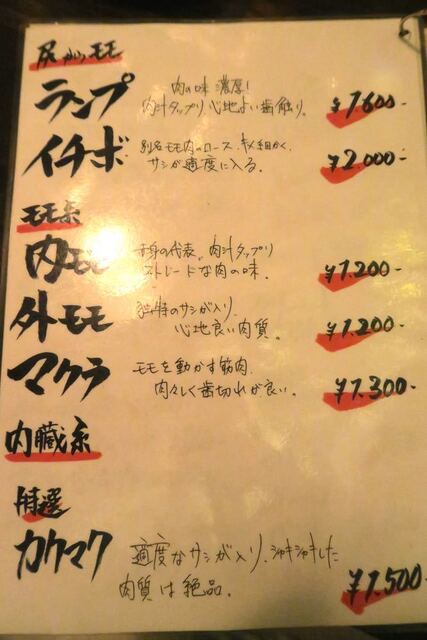 尻からモモ
ランプ
肉の味濃厚!
肉汁タップリ、心地よい歯触り。
¥1600-
イチボ
別名モモ肉のロース、キメ細かく、
サシが適度に入る。
¥2.000-
モモ系
内モモ
赤身の代表。肉汁タップリ
ストレートな肉の味。
¥1.200-
外モモ
独特のサシが入り、
心地良い肉質。
¥1.200-
マクラ
モモを動かす筋肉。
肉々しく歯切れが良い。
¥1.300-
内臓系
特選
カクマク
適度なサシが入り、シャキシャキした
肉質は絶品。
¥1.500-